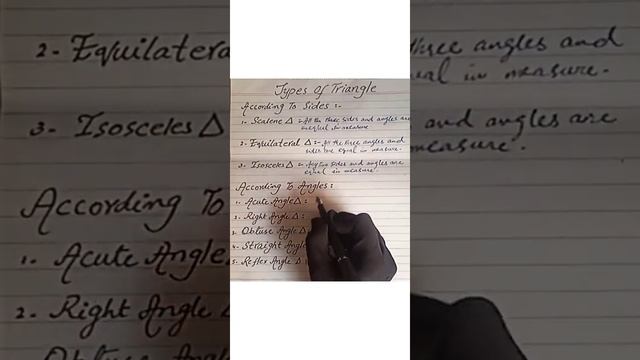 Types of Triangle
According To Sides :-
1- Scalene Δ :- All the three sides and angles are
unequal in measure
2- Equilateral Δ :- All the three angles and
sides are equal in measure.
3- Isosceles Δ :- Any two sides and angles are
equal in measure.
According To Angles :
1. Acute Angle Δ :
2. Right Angle Δ :
3. Obtuse Angle Δ
4. Straight Angle
5. Reflex Angle Δ
2- Equilateral
three angles and
equal in measure.
3- Isosceles Δ
and angles are
measure.
According To
1. Acute Angle
2. Right Angle